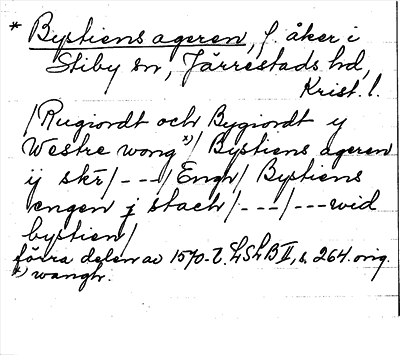 * Bystiens ageren, f. åker i
Stiby sn, Järrestads hd,
Krist. l.
/Rugiordt och Bygiordt y
Westre wong*)/ Bystiens ageren
ij skr/---/Engh/ Bystiens
engen j stach/---/---wid
bystien/
förra delen av 1570-t. LSkB II, s. 264. orig.
*) wangh.